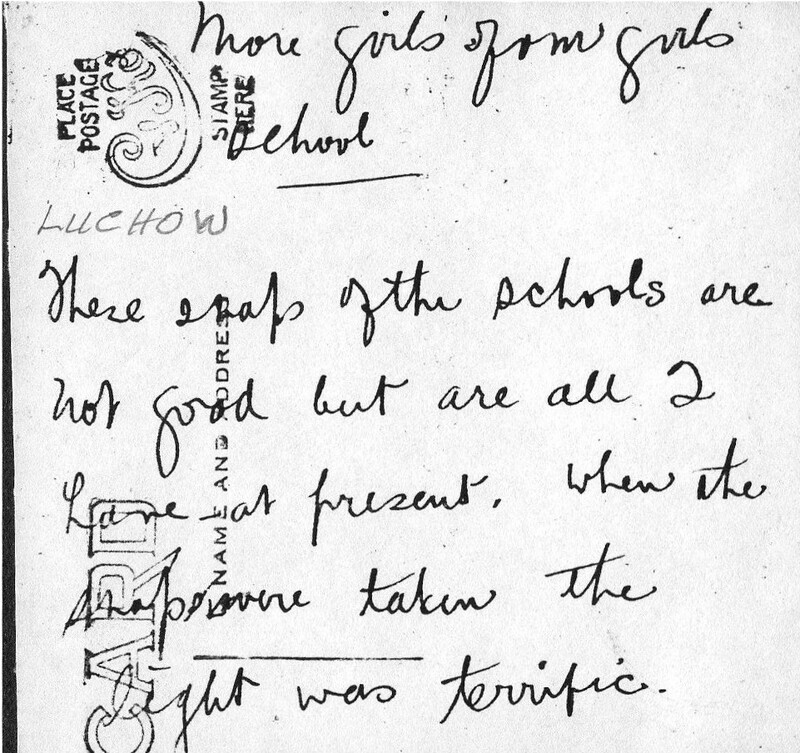 More girls of our girls
school
LUCHOW
These snaps of the schools are
not good but are all I
have at present. When the
snaps were taken the
light was terrific.
PLACE
POSTAGE
STAMP
HERE
NAME AND ADDRESS
CARD